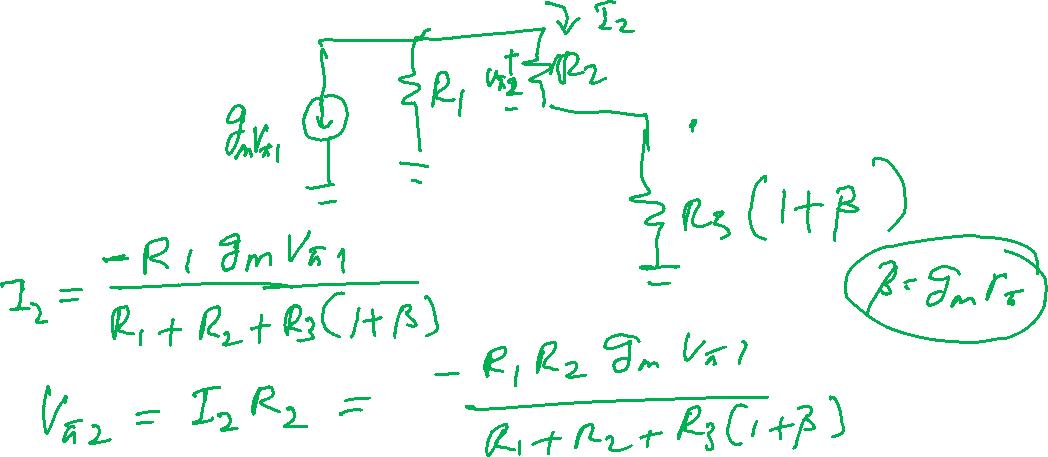 I₂
+
Vπ2
-
R₂
R₁
gmVπ1
R₃(1+β)
β = gm rπ
I₂ = -R₁ gm Vπ1 / R₁ + R₂ + R₃(1+β)
Vπ2 = I₂ R₂ = - R₁ R₂ gm Vπ1 / R₁ + R₂ + R₃(1+β)